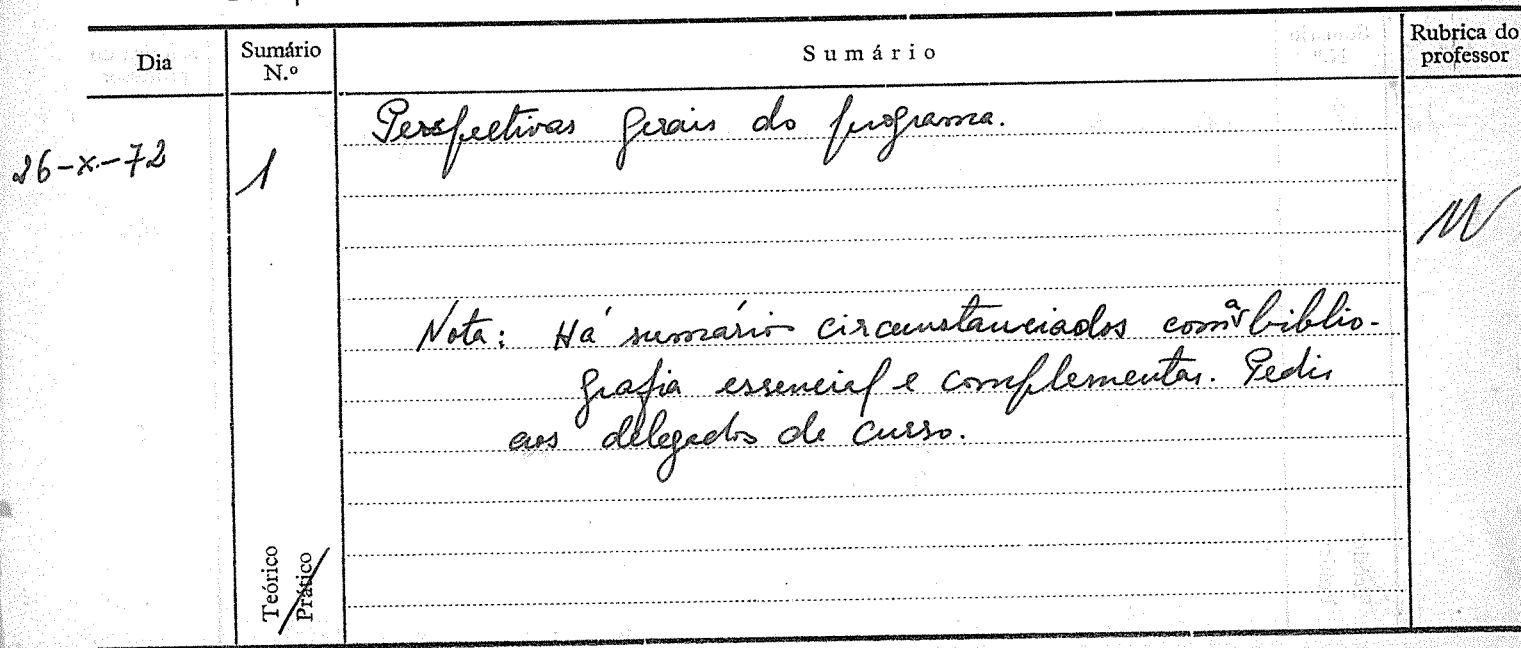 Dia
Sumário N.º
Sumário
Rubrica do professor
26-X-72
1
Perspectivas gerais do programa.
Nota: Há sumários circunstanciados com a biblio-
grafia essencial e complementar. Pedir
aos delegados de curso.
Teórico
Prático